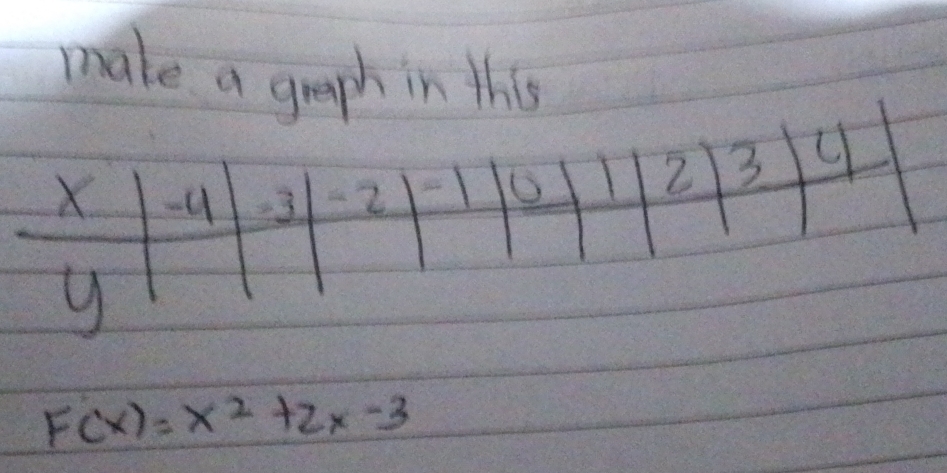 make a graph in this
x -4 -3 -2 -1 0 1 2 3 4
y
F(x)=x² +2x -3